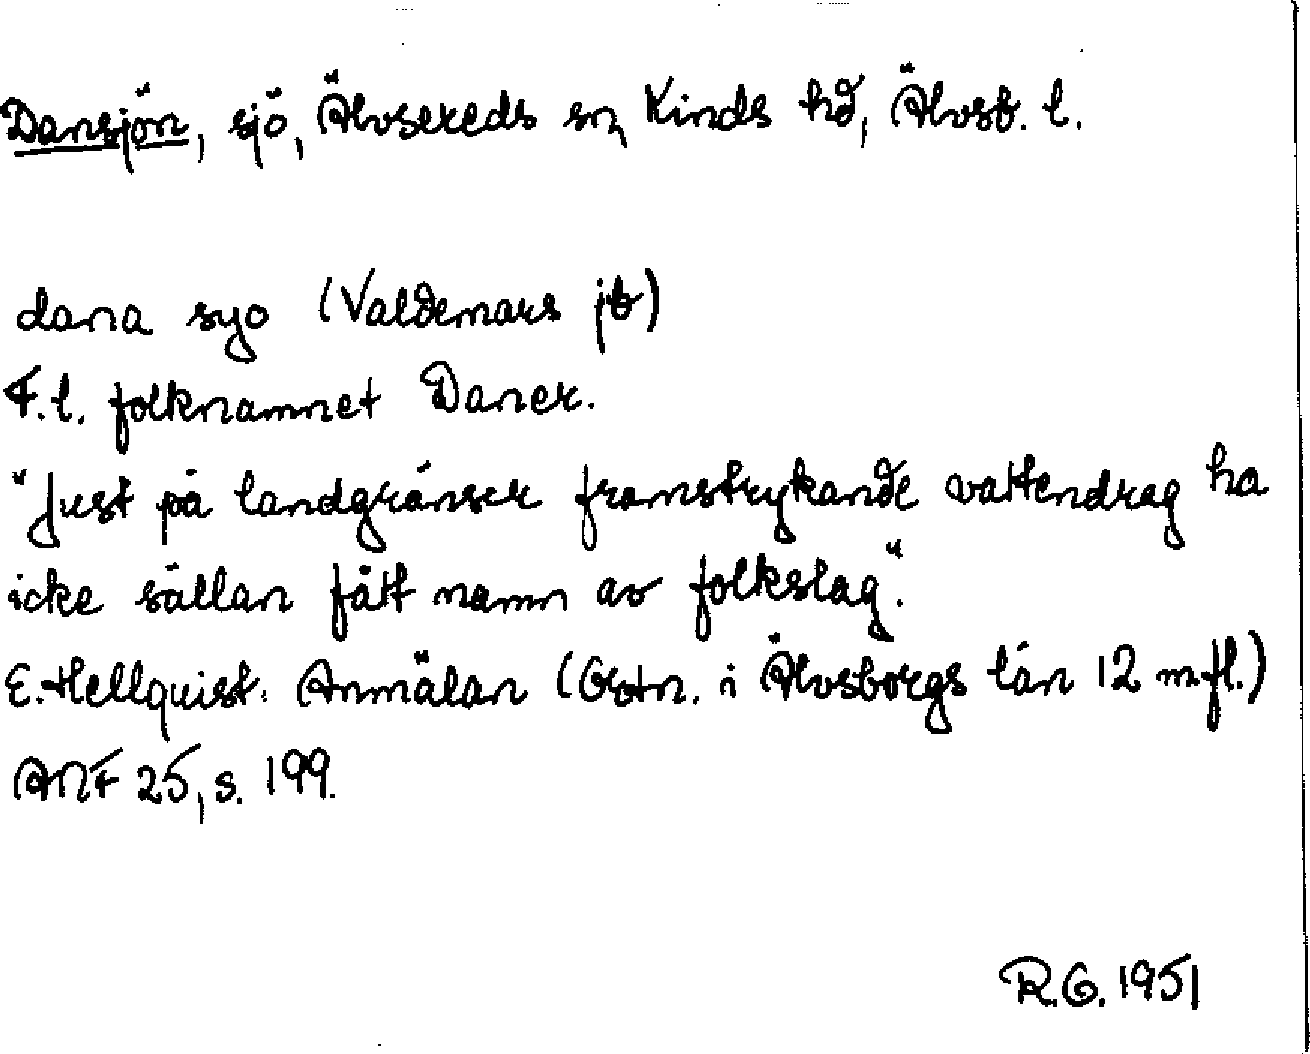 Dansjön, sjö, Älvsereds sn, Kinds hd, Älvsb. l.
dana syo (Valdemars jb)
F.l. folknamnet Daner.
"Just på landgränser framstrykande vattendrag ha
icke sällan fått namn av folkslag".
E. Hellquist: Anmälan (Ortn. i Älvsborgs län 12 m.fl.)
ANF 25, s. 199.
R.G. 1951